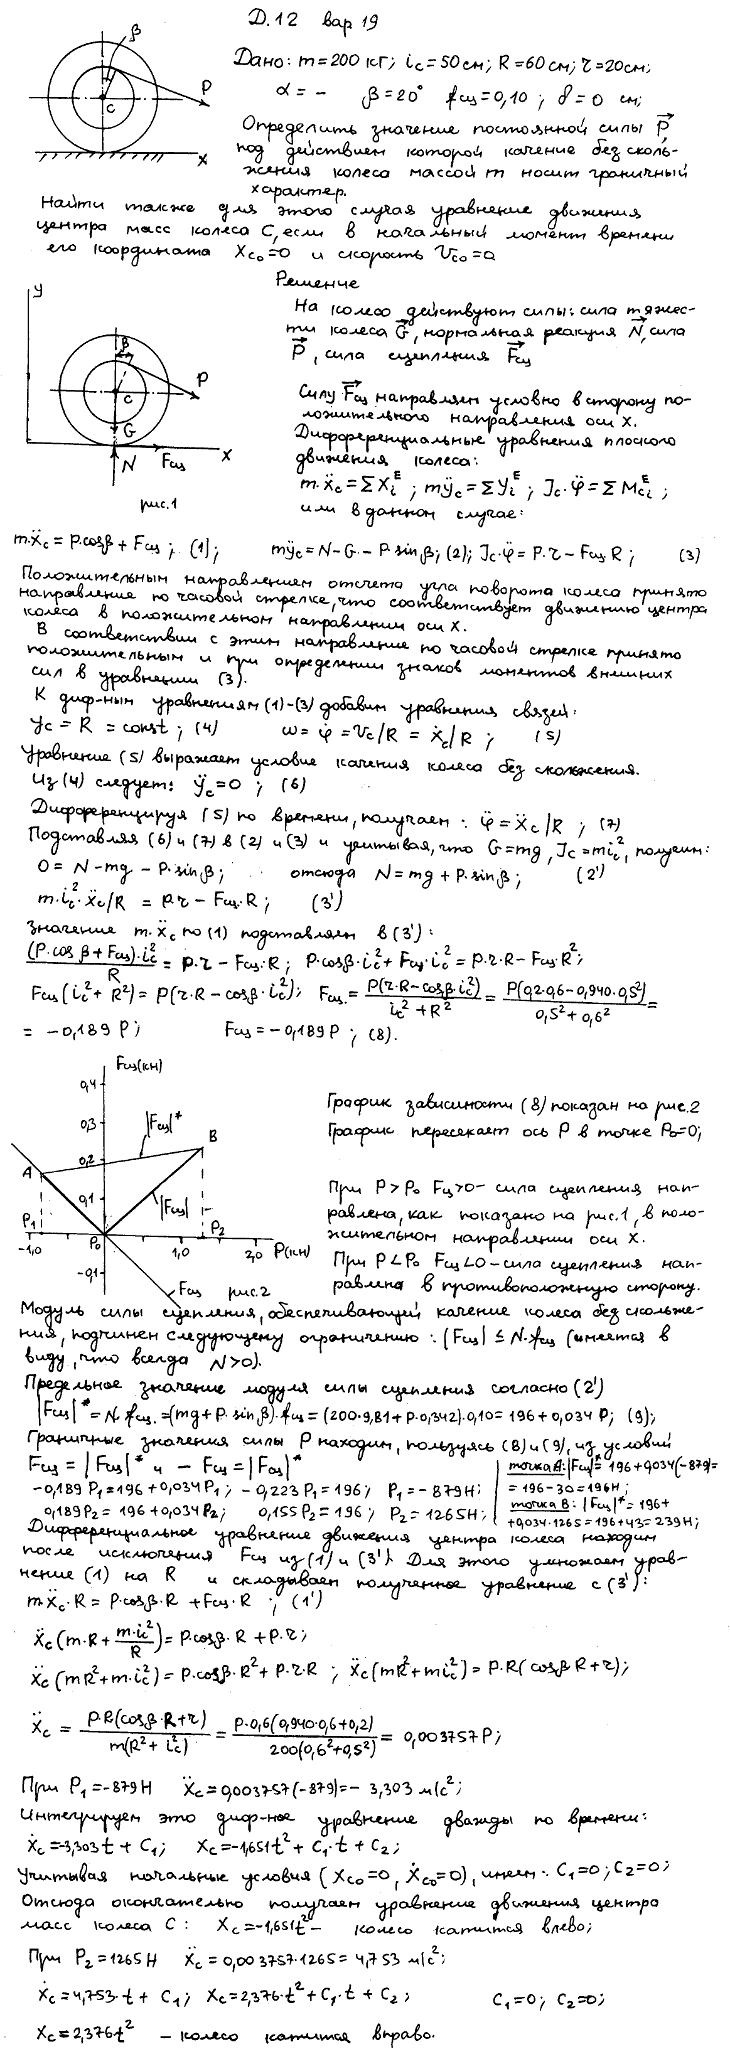 Д.12 вар 19
β
P
C
X
Дано: m=200 кг; i_c=50 см; R=60 см; r=20 см;
α = – β=20° f_сц=0,10 ; δ=0 см;
Определить значение постоянной силы P,
под действием которой качение без сколь-
жения колеса массой m носит граничный
характер.
Найти также для этого случая уравнение движения
центра масс колеса C, если в начальный момент времени
его координата X_C0=0 и скорость V_C0=0
Решение
У
β
P
C
G
N
F_сц
X
рис.1
На колесо действуют силы: сила тяжес-
ти колеса G, нормальная реакция N, сила
P, сила сцепления F_сц
Силу F_сц направляем условно в сторону по-
ложительного направления оси X.
Дифференциальные уравнения плоского
движения колеса:
m·ẍ_c=ΣX_i^E ; mÿ_c=ΣY_i^E ; J_c·φ̈=ΣM_ci^E ;
или в данном случае:
m·ẍ_c = P·cosβ + F_сц ; (1); mÿ_c=N-G-P·sinβ; (2); J_c·φ̈=P·r-F_сц·R ; (3)
Положительным направлением отсчета угла поворота колеса принято
направление по часовой стрелке, что соответствует движению центра
колеса в положительном направлении оси X.
В соответствии с этим направление по часовой стрелке принято
положительным и при определении знаков моментов внешних
сил в уравнении (3).
К диф-ным уравнениям (1)-(3) добавим уравнения связей:
y_c = R = const ; (4) ω = φ̇ = V_c/R = ẋ_c/R ; (5)
Уравнение (5) выражает условие качения колеса без скольжения.
Из (4) следует: ÿ_c=0 ; (6)
Дифференцируя (5) по времени, получаем : φ̈ = ẍ_c/R ; (7)
Подставляя (6) и (7) в (2) и (3) и учитывая, что G=mg, J_c=mi_c², получим:
0 = N-mg-P·sinβ; отсюда N=mg+P·sinβ; (2')
m·i_c²·ẍ_c/R = P·r-F_сц·R ; (3')
Значение m·ẍ_c по (1) подставляем в (3') :
(P·cosβ+F_сц)·i_c²/R = P·r-F_сц·R ; P·cosβ·i_c²+F_сц·i_c²=P·r·R-F_сц·R²;
F_сц(i_c²+R²)=P(r·R-cosβ·i_c²); F_сц=P(r·R-cosβ·i_c²)/(i_c²+R²)=P(0,2·0,6-0,940·0,5²)/(0,5²+0,6²)=
= -0,189 P; F_сц=-0,189P ; (8).
F_сц(кН)
0,4
0,3
|F_сц|*
B
0,2
A
0,1
|F_сц|
P_1
P_0
P_2
-1,0
1,0
2,0
P(кН)
-0,1
F_сц
рис.2
График зависимости (8) показан на рис.2
График пересекает ось P в точке P_0=0;
При P>P_0 F_сц>0- сила сцепления нап-
равлена, как показано на рис.1, в поло-
жительном направлении оси X.
При P<P_0 F_сц<0-сила сцепления нап-
равлена в противоположную сторону.
Модуль силы сцепления, обеспечивающий качение колеса без скольже-
ния, подчинен следующему ограничению : |F_сц| ≤ N·f_сц (имеется в
виду, что всегда N>0).
Предельное значение модуля силы сцепления согласно (2')
|F_сц|*=N·f_сц=(mg+P·sinβ)·f_сц=(200·9,81+P·0,342)·0,10=196+0,034 P; (9);
Граничные значения силы P находим, пользуясь (8) и (9), из условий
F_сц = |F_сц|* и -F_сц=|F_сц|*
-0,189P_1=196+0,034P_1; -0,223P_1=196; P_1=-879Н;
0,189P_2=196+0,034P_2; 0,155P_2=196; P_2=1265Н;
точка A: |F_сц|*=196+0,034(-879)=
=196-30=196Н;
точка B: |F_сц|*=196+
+0,034·1265=196+43=239Н;
Дифференциальное уравнение движения центра колеса находим
после исключения F_сц из (1) и (3'). Для этого умножаем урав-
нение (1) на R и складываем полученное уравнение с (3') :
m·ẍ_c·R = P·cosβ·R +F_сц·R ; (1')
ẍ_c(m·R+m·i_c²/R)=P·cosβ·R+P·r;
ẍ_c(mR²+m·i_c²)=P·cosβ·R²+P·r·R ; ẍ_c(mR²+mi_c²)=P·R(cosβ·R+r);
ẍ_c = P·R(cosβ·R+r)/m(R²+i_c²) = P·0,6(0,940·0,6+0,2)/200(0,6²+0,5²) = 0,003757P;
При P_1=-879Н ẍ_c=0,003757(-879)=-3,303 м/с²;
Интегрируем это диф-ное уравнение дважды по времени:
ẋ_c=-3,303t+C_1; x_c=-1,651t²+C_1·t+C_2;
Учитывая начальные условия (X_C0=0, Ẋ_C0=0), имеем: C_1=0; C_2=0;
Отсюда окончательно получаем уравнение движения центра
масс колеса C: X_c=-1,651t²- колесо катится влево;
При P_2=1265Н ẍ_c=0,003757·1265=4,753 м/с²;
ẋ_c=4,753·t+C_1; x_c=2,376·t²+C_1·t+C_2; C_1=0; C_2=0;
X_c=2,376t² – колесо катится вправо.